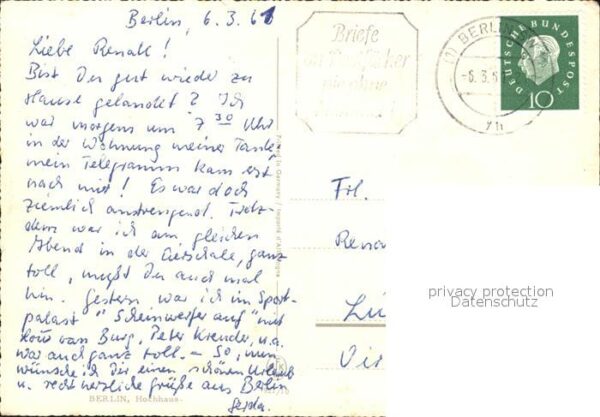 Berlin, 6.3.61
Liebe Renate!
Bist Du gut wieder zu
Hause gelandet? Ich
war morgens um 7 30 Uhr
in der Wohnung meiner Tante
mein Telegramm kam erst
nach mir! Es war doch
ziemlich anstrengend. Trotz-
dem war ich am gleichen
Abend in der Eierschale, ganz
toll, mußt Du auch mal
hin. Gestern war ich im Sport-
palast "Scheinwerfer auf" mit
Lou van Burg, Peter Kreuder, u.a.
war auch ganz toll. – So, nun
wünsche ich Dir einen schönen Urlaub
u. recht herzliche Grüße aus Berlin
Gerda.
BERLIN, Hochhaus
Briefe
an Postfächer
nie ohne
(1) BERLIN
-6.3.6
DEUTSCHE BUNDESPOST
10
Frl.
Rena
Lü
privacy protection
Datenschutz